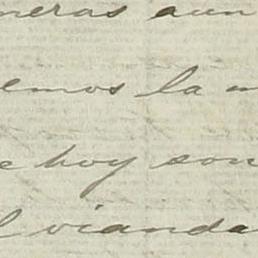 neras aun
emos la
e hoy son
l vianda